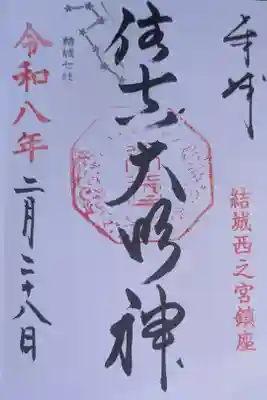 奉拝
結城西之宮鎮座
住吉大明神
結城七社
令和八年
二月二十八日